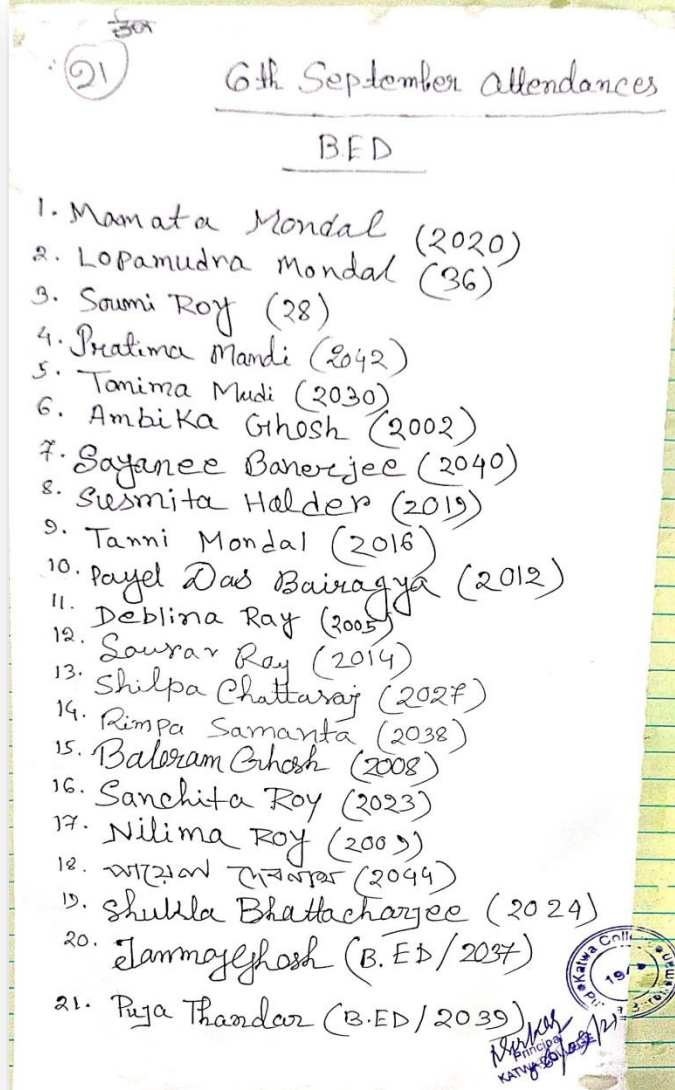 21
6th September attendances
B.ED
1. Mamata Mondal (2020)
2. Lopamudra Mondal (36)
3. Soumi Roy (28)
4. Pratima Mandi (2042)
5. Tanima Mudi (2030)
6. Ambika Ghosh (2002)
7. Sayanee Banerjee (2040)
8. Susmita Halder (2019)
9. Tanni Mondal (2016)
10. Payel Das Bairagya (2012)
11. Deblina Ray (2005)
12. Sourav Ray (2014)
13. Shilpa Chattaraj (2027)
14. Rimpa Samanta (2038)
15. Baloram Ghosh (2008)
16. Sanchita Roy (2023)
17. Nilima Roy (2009)
18. (2044)
19. Shukla Bhattacharjee (2024)
20. Tanmoy Ghosh (B.ED/2037)
21. Puja Thandar (B.ED/2039)
Katwa
Principal
KATWA COLLEGE